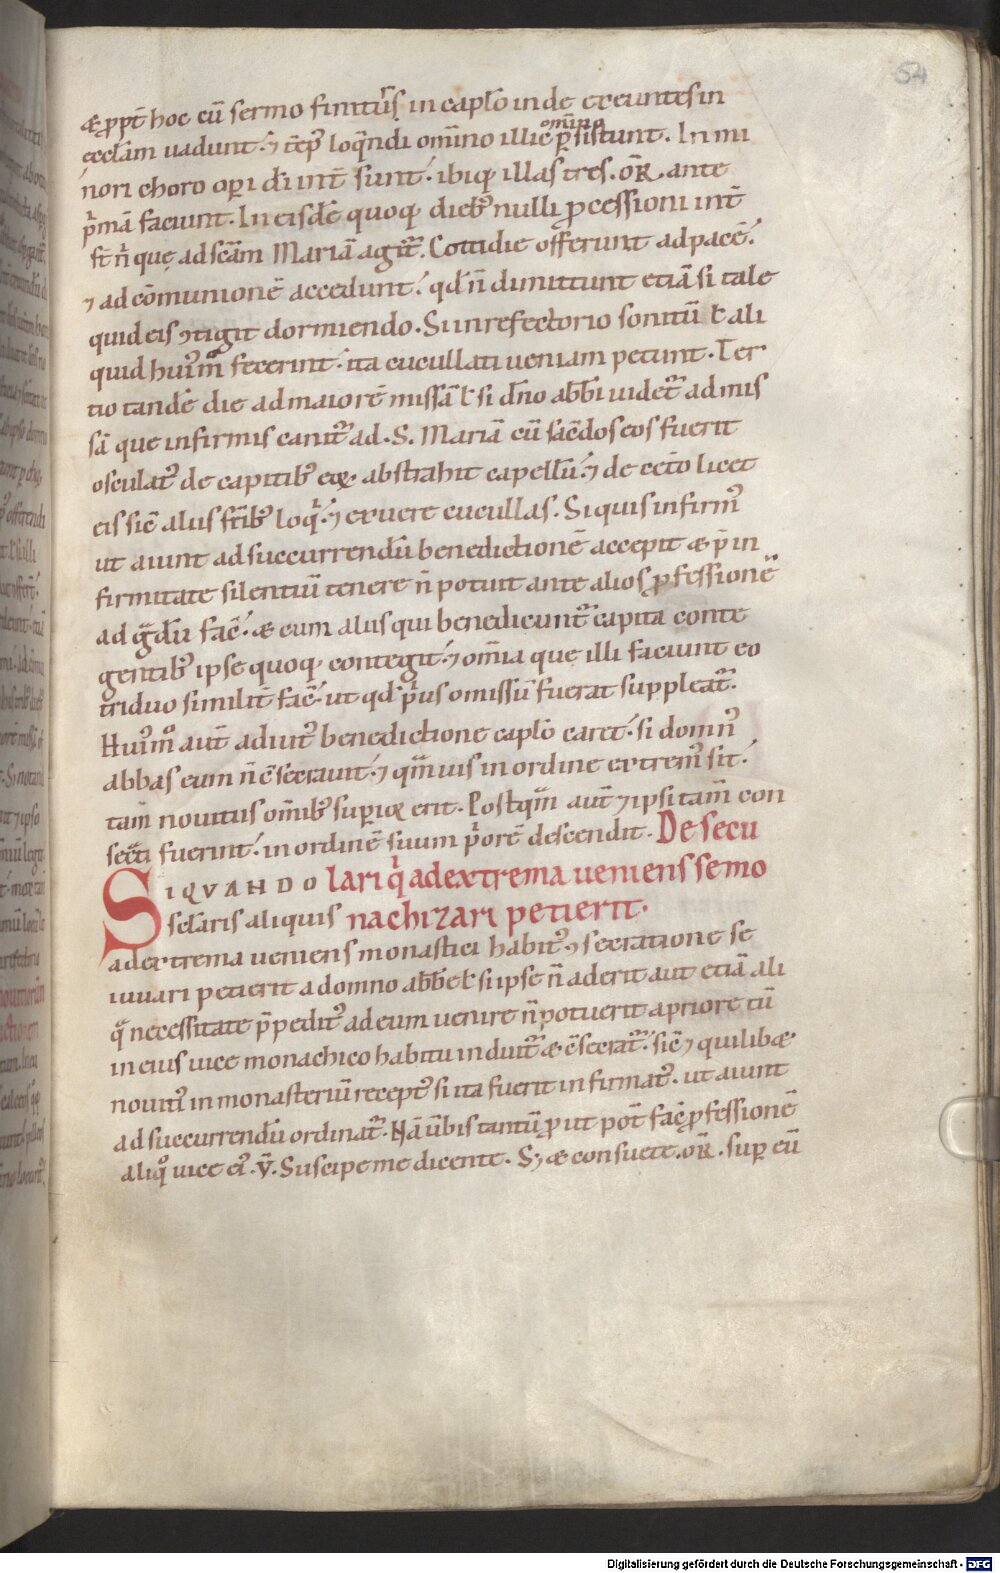 54
& ppt̄ hoc cū sermo finitus̄ in caplo inde exeuntes in
eccłam uadunt. ⁊ tēp̄ loq̄ndi om̄ino illic om̄ino p̱sistunt. In mi
nori choro op̱i dī int̄ sunt. ibiq; illas tres. oR̄. ante
p̄mā faciunt. In eisdē quoq; dieb; nulli ꝓcessioni int̄
st̄ n̄ quę ad scām Mariā agit̄. Cottidie offerunt ad pacē.
⁊ ad cōmunionē accedunt. qd̄ n̄ dimittunt etiā si tale
quid eis ↄtigit dormiendo. Si in refectorio sonitū ł ali
quid hui᷒mo̊ fecerint. ita cucullati ueniam petunt. Ter
tio tandē die ad maiorē missā ł si dn̄o abb̄i uidet᷑ ad mis
sā que infirmis canit᷑ ad. S. Mariā cū sac̄dos eos fuerit
osculat᷒ de capitib; eoꝝ abstrahit capellū. ⁊ de cet̄o licet
eis sic̄ aliis fr̄ib; loq̄. ⁊ exuere cucullas. Si quis infirm᷒
ut aiunt ad succurrendū benedictionē accepit & p̄ in
firmitate silentiū tenere n̄ potuit ante alios ꝓfessionē
ad gͣdū fac̄. & cum aliis qui benedicunt᷑ capita conte
gentib; ipse quoq; contegit. ⁊ om̄ia quę illi faciunt eo
triduo similit̄ fac̄. ut qd̄ p̄us omissū fuerat suppleat᷑.
Hui᷒mo̊ aut̄ adiut᷒ benedictione caplo caret. si domn᷒
abbas eum n̄ ↄsecrauit. ⁊ qͣmuis in ordine extrem᷒ sit.
tam̄ nouitiis om̄ib; sup̱ioꝝ erit. Postqͣ aut̄ ⁊ ipsi tam̄ con
secͣti fuerint. in ordinē suum p̄orē descendit. De secu
SIQVANDO lari q̄ ad extrema ueniens se mo
sclaris aliquis nachizari petierit.
ad extrema ueniens monastici habit᷒ ⁊ secratione se
iuuari petierit a domno abbe ł si ipse n̄ aderit aut etiā ali
qͣ necessitate p̄pedit᷒ ad eum uenire n̄ potuerit a priore tū
in eius uice monachico habitu induit᷑ & ↄsecrat᷑. sic̄ ⁊ quilib&
nouiti᷒ in monasteriū recept᷒ si ita fuerit infirmat᷒. ut aiunt
ad succurrendū ordinat᷑. Nā ūbis tantū ꝓut pot̄ fac̄ ꝓfessionē
aliqo̊ uice ei᷒. V̄. Suscipe me dicente. S; & consuete. oR̄. sup̱ eū
Digitalisierung gefördert durch die Deutsche Forschungsgemeinschaft - DFG